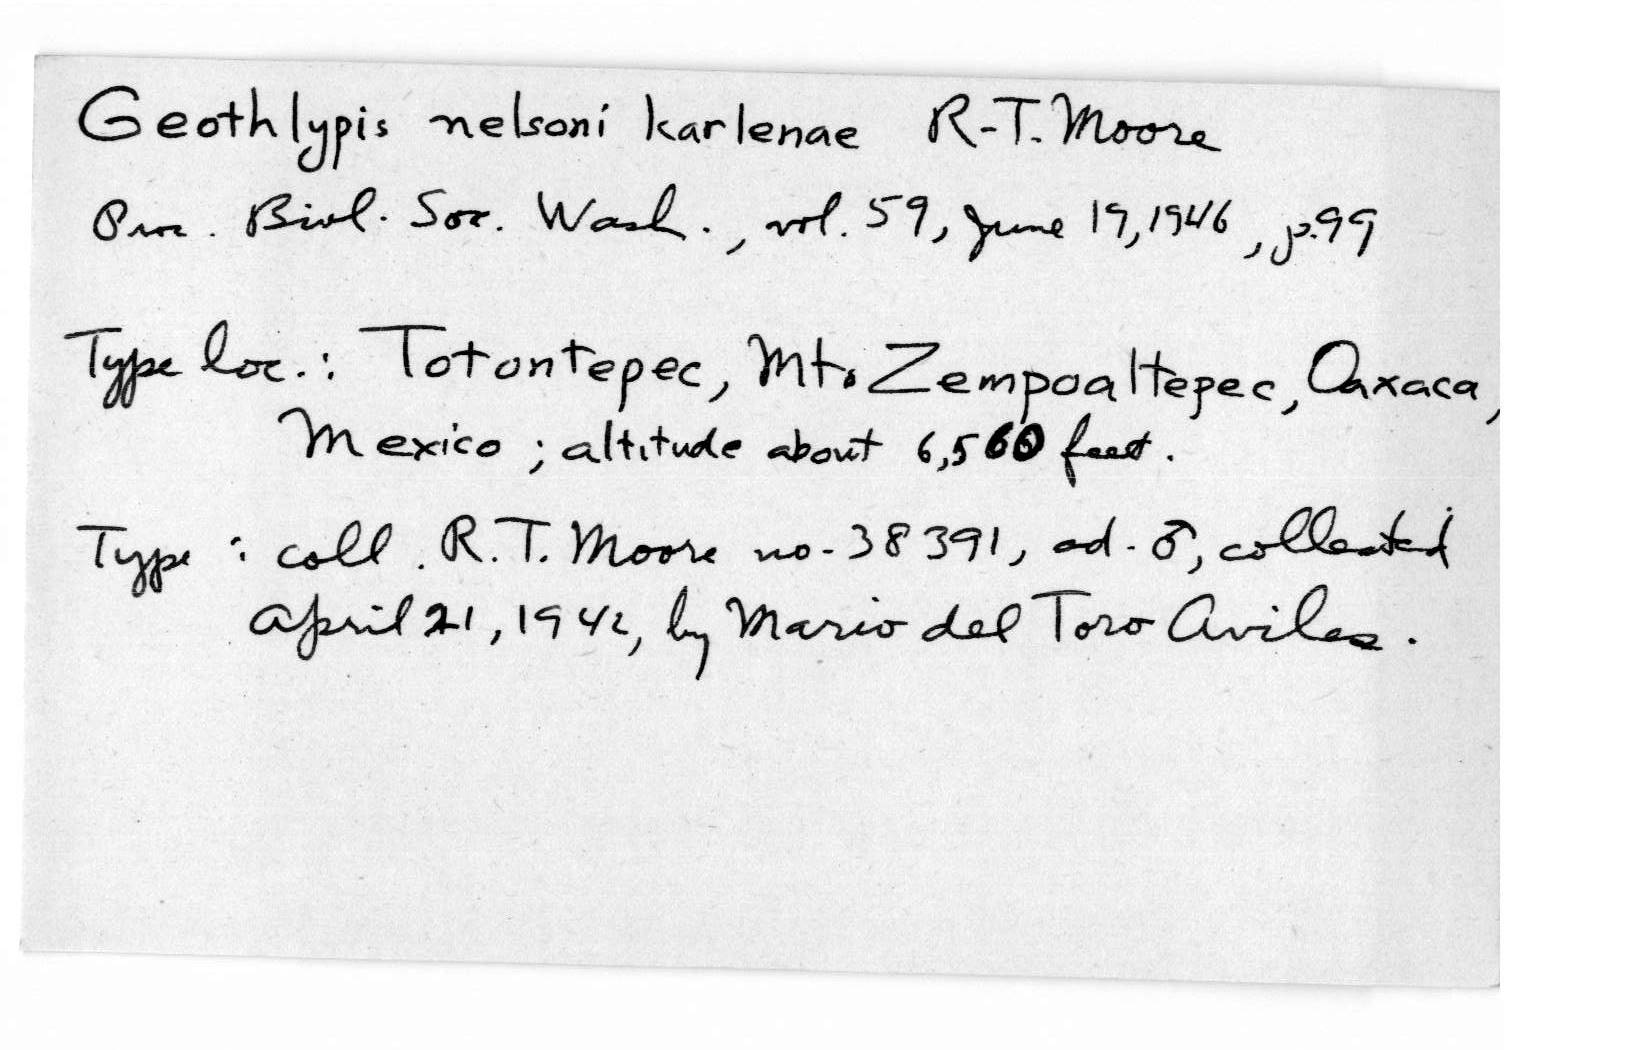 Geothlypis nelsoni karlenae R-T. Moore
Proc. Biol. Soc. Wash., vol. 59, June 19, 1946, p. 99
Type loc.: Totontepec, Mt. Zempoaltepec, Oaxaca,
Mexico; altitude about 6,560 feet.
Type: coll. R. T. Moore no. 38391, ad. ♂, collected
April 21, 1942, by Mario del Toro Aviles.